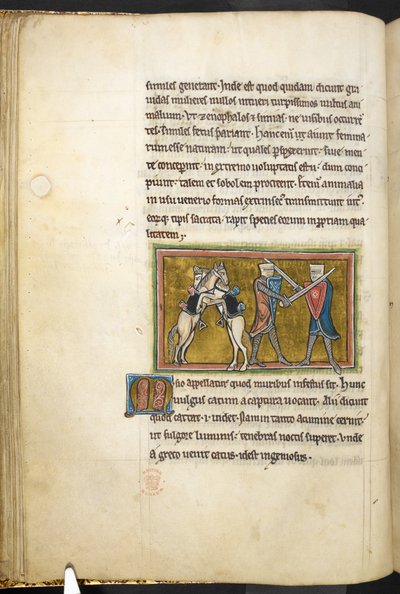 similes generant. Inde est quod quidam dicunt gra
uidas mulieres nullos intueri turpissimos uultus ani
malium. ut cenophalos & simias. ne uisibus occurren
tes. similes fetus pariant. Hanc eni ut aiunt femina
rum esse naturam. ut quales perspexerint. siue men
te conceperint. in extremo uoluptatis estu. dum conci
piunt. talem et sobolem procreent. Etenim animalia
in usu uenerio formas extrinsec transmittunt int.
eorq; tipis saciata. rapit species eorum in propriam qua
litatem.
Musio appellatur quod muribus infestus sit. Hunc
uulgus catum a captura uocant. Alii dicunt
quod cattat .i. uidet. Nam in tanto acumine cernit
ut fulgore luminis. tenebras noctis superet. Unde
a greco uenit catus. idest ingeniosus.